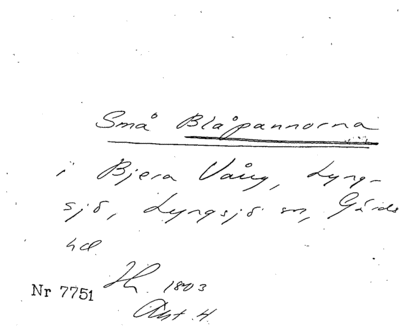 Små Blåpannorna
i Bjera Vång, Lyng-
sjö, Lyngsjö sn, Gärds
hd
Nr 7751 1803